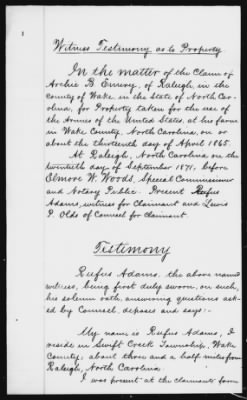 1
Witness Testimony as to Property
In the matter of the Claim of
Archie B. Emery, of Raleigh, in the
County of Wake in the State of North Car-
olina, for Property taken for the use of
the Armies of the United States, at his farm
in Wake County, North Carolina, on or
about the thirteenth day of April 1865.
At Raleigh, North Carolina on the
twentieth day of September 1871, before
Elmore W. Woods, Special Commissioner
and Notary Public. Present Rufus
Adams, witness for Claimant and Lewis
P. Olds of Counsel for claimant.
Testimony
Rufus Adams, the above named
witness, being first duly sworn, on such,
his solemn oath, answering questions ask-
ed by Counsel, deposes and says:-
My name is Rufus Adams, I
reside in Swift Creek Township, Wake
County, about three and a half miles from
Raleigh, North Carolina.
I was present at the claimants farm